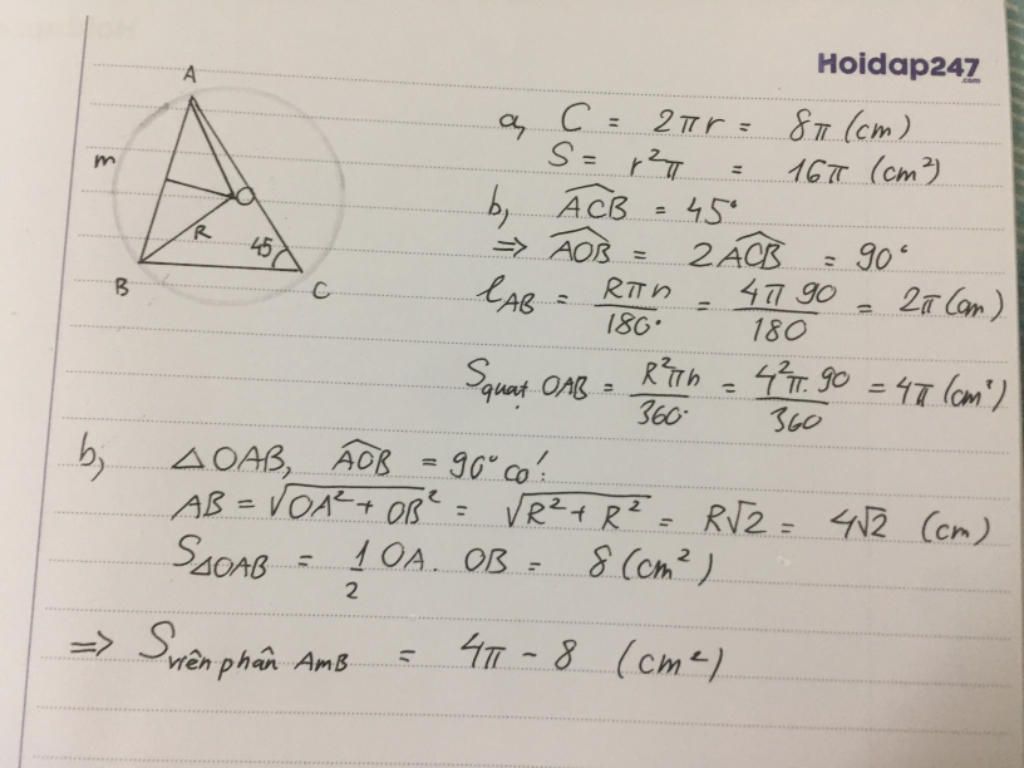 Hoidap247
.com
A
m
O
R
45
B
C
a, C = 2πr = 8π (cm)
S = r²π = 16π (cm²)
b, ACB = 45°
=> AOB = 2ACB = 90°
l_AB = Rπn/180° = 4π 90/180 = 2π (cm)
S quạt OAB = R²πn/360° = 4²π.90/360 = 4π (cm²)
b, △OAB, AOB = 90° có:
AB = √OA² + OB² = √R² + R² = R√2 = 4√2 (cm)
S△OAB = 1/2 OA. OB = 8 (cm²)
=> S viên phân AmB = 4π - 8 (cm²)